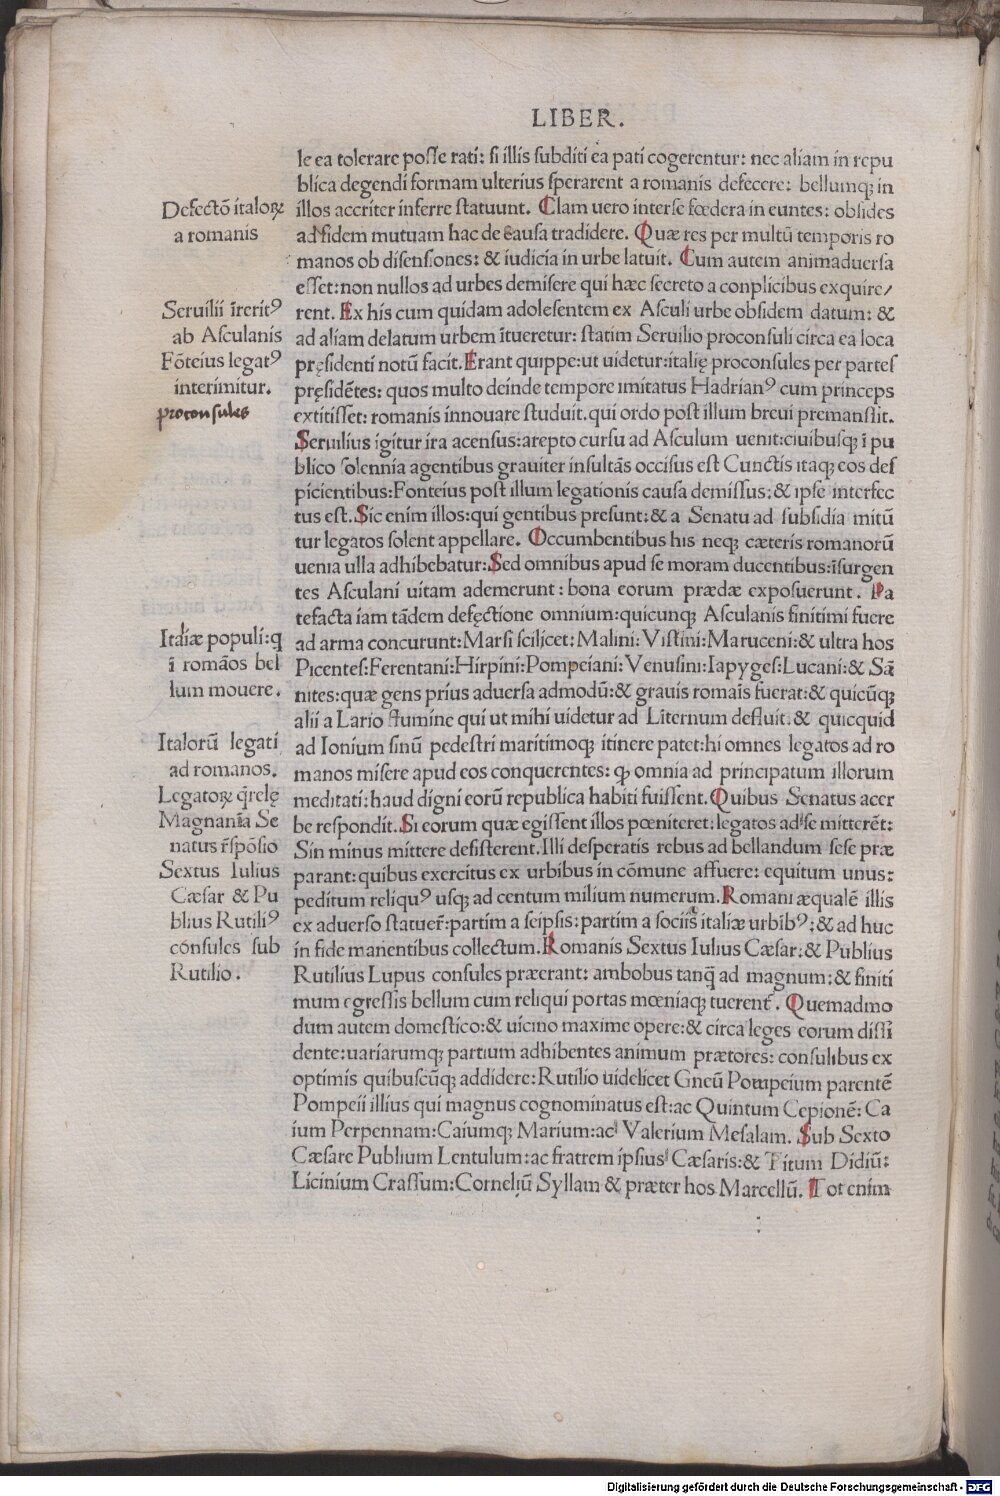 LIBER.
le ea tolerare posse rati: si illis subditi ea pati cogerentur: nec aliam in repu
blica degendi formam ulterius sperarent a romanis defecere: bellumqꝫ in
Defectō italoꝝ
illos accriter inferre statuunt. Clam uero inter se fœdera in euntes: obsides
a romanis
ad fidem mutuam hac de causa tradidere. Quæ res per multū temporis ro
manos ob disensiones: & iudicia in urbe latuit. Cum autem animaduersa
esset: non nullos ad urbes demisere qui hæc secreto a conplicibus exquire/
Seruilii īteritꝰ
rent. Ex his cum quidam adolesentem ex Asculi urbe obsidem datum: &
ab Asculanis
ad aliam delatum urbem ītueretur: statim Seruilio proconsuli circa ea loca
Fōteius legatꝰ
pręsidenti notū facit. Erant quippe: ut uidetur: italię proconsules per partes
interimitur.
pręsidētes: quos multo deinde tempore imitatus Hadrianꝰ cum princeps
proconsules
extitisset: romanis innouare studuit. qui ordo post illum breui premansit.
Seruilius igitur ira acensus: arepto cursu ad Asculum uenit: ciuibusqꝫ ī pu
blico solennia agentibus grauiter insultās occisus est Cunctis itaqꝫ eos des
picientibus: Fonteius post illum legationis causa demissus: & ipse interfec
tus est. Sic enim illos: qui gentibus presunt: & a Senatu ad subsidia mitū
tur legatos solent appellare. Occumbentibus his neqꝫ cæteris romanorū
uenia ulla adhibebatur: Sed omnibus apud se moram ducentibus: īsurgen
tes Asculani uitam ademerunt: bona eorum prædæ exposuerunt. Pa
tefacta iam tādem defęctione omnium: quicunqꝫ Asculanis finitimi fuere
Italiæ populi: q
ad arma concurunt: Marsi scilicet: Malini: Vistini: Maruceni: & ultra hos
ī romāos bel
Picentes: Ferentani: Hirpini: Pompeiani: Venusini: Iapyges: Lucani: & Sā
lum mouere.
nites: quæ gens prius aduersa admodū: & grauis romaīs fuerat: & quicūqꝫ
alii a Lario flumine qui ut mihi uidetur ad Liternum defluit. & quicquid
Italorū legati
ad Ionium sinū pedestri maritimoqꝫ itinere patet: hi omnes legatos ad ro
ad romanos.
manos misere apud eos conquerentes: ꝙ omnia ad principatum illorum
Legatoꝝ q̄relę
meditati: haud digni eorū republica habiti fuissent. Quibus Senatus acer
Magnania Se
be respondit. Si eorum quæ egissent illos pœniteret: legatos ad se mitterēt:
natus r̄spōsio
Sin minus mittere desisterent. Illi desperatis rebus ad bellandum sese præ
Sextus Iulius
parant: quibus exercitus ex urbibus in cōmune affuere: equitum unus:
Cæsar & Pu
peditum reliquꝰ usqꝫ ad centum milium numerum. Romani æqualē illis
blius Rutiliꝰ
ex aduerso statuer̄: partim a seipsis: partim a sociis italiæ urbibꝰ: & ad huc
cónsules sub
in fide manentibus collectum. Romanis Sextus Iulius Cæsar: & Publius
Rutilio.
Rutilius Lupus consules præerant: ambobus tanq̄ ad magnum: & finiti
mum egressis bellum cum reliqui portas mœniaqꝫ tuerent̄. Quemadmo
dum autem domestico: & uicino maxime opere: & circa leges eorum dissi
dente: uariarumqꝫ partium adhibentes animum prætores: consulibus ex
optimis quibuscūqꝫ addidere: Rutilio uidelicet Gneū Pompeium parentē
Pompeii illius qui magnus cognominatus est: ac Quintum Cepionē: Ca
ium Perpennam: Caiumqꝫ Marium: ac Valerium Mesalam. Sub Sexto
Cæsare Publium Lentulum: ac fratrem ipsius Cæsaris: & Titum Didiū:
Licinium Crassum: Corneliū Syllam & præter hos Marcellū. Tot enim
Digitalisierung gefördert durch die Deutsche Forschungsgemeinschaft - DFG